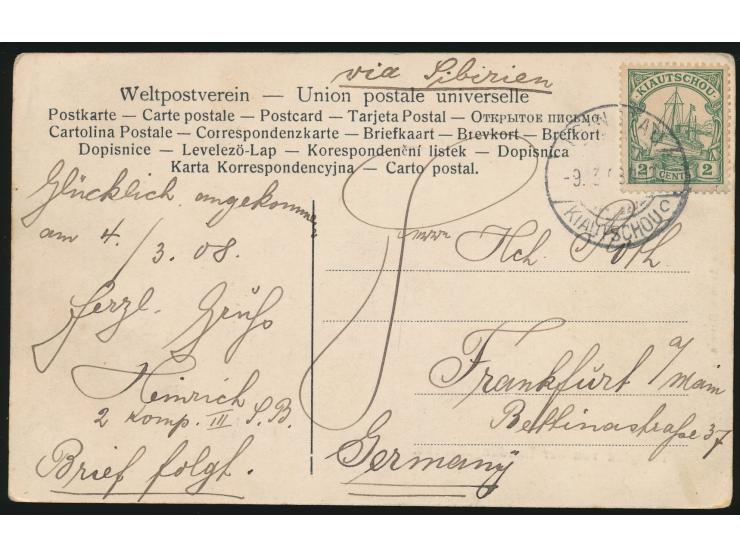 via Sibirien
Weltpostverein — Union postale universelle
Postkarte — Carte postale — Postcard — Tarjeta Postal — Открытое письмо
Cartolina Postale — Correspondenzkarte — Briefkaart — Brevkort — Brefkort
Dopisnice — Levelező-Lap — Korespondenční listek — Dopisnica
Karta Korrespondencyjna — Carto postal.
KIAUTSCHOU
2 CENT 2
KIAUTSCHOU
Glücklich angekommen
am 4./3.08.
herzl. Gruß
Heinrich
2 Komp. III S.B.
Brief folgt.
Hch. Roth
Frankfurt a/Main
Bettinastraße 37
Germany